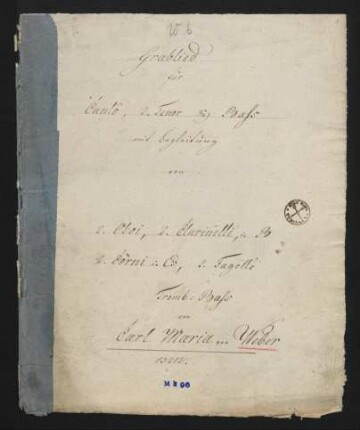 Grablied
für
Canto, 2. Tenor Baſs
mit Begleitung
von
2. Oboi, 2. Clarinetti, in B
2. Corni in Es, 2. Fagotti
Tromb: Baſs
von
Carl Maria von Weber